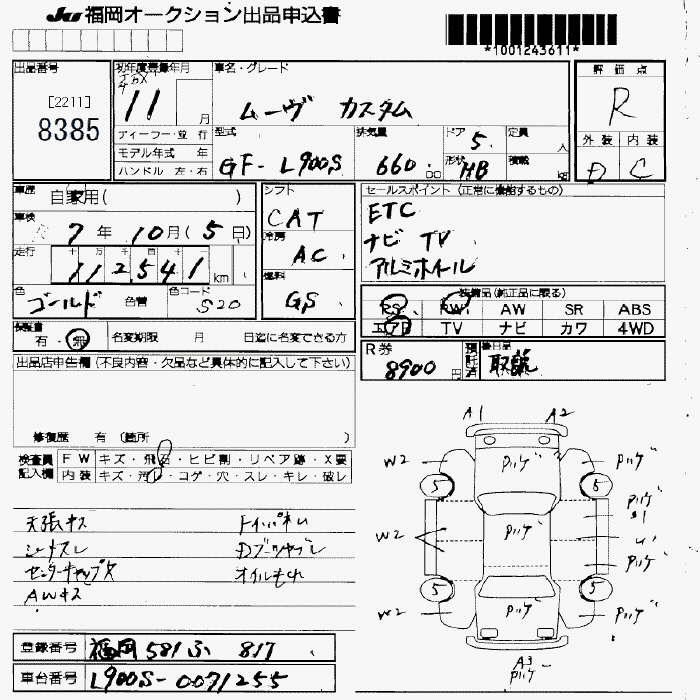 JU 福岡オークション出品申込書
*1001243611*
出品番号
[2211]
8385
初年度登録年月
11 月
車名・グレード
ムーヴ カスタム
評価点
R
外装 内装
D C
ディーラー・並行
モデル年式 年
ハンドル 左・右
型式
GF-L900S
排気量
660 cc
ドア 5.
形状 HB
定員 人
積載 kg
車歴 自家用( )
車検 7年 10月(5日)
走行 112,541 km
色 ゴールド 色替
色コード S20
シフト
CAT
冷房
AC
燃料
GS
セールスポイント (正常に機能するもの)
ETC
ナビ TV
アルミホイール
装備品(純正品に限る)
PS PW AW SR ABS
エアB TV ナビ カワ 4WD
保証書
有・無 名変期限 月 日迄に名変できる方
R券
8900 円
預託済
後日品
取説
出品店申告欄(不良内容・欠品など具体的に記入して下さい)
修復歴 有 (箇所 )
検査員記入欄
FW キズ・飛石・ヒビ割・リペア跡・X要
内装 キズ・汚レ・コゲ・穴・スレ・キレ・破レ
天張キズ
シートスレ
センターキャップ欠
AWキズ
Dブーツヤブレ
オイルモレ
A1 A2
W2 Pハゲ Pハゲ
5 5
Pハゲ
W2 Pハゲ
Pハゲ
5 5
W2 Pハゲ Pハゲ
A3
Pハゲ
登録番号 福岡 581 ふ 817
車台番号 L900S-0071255